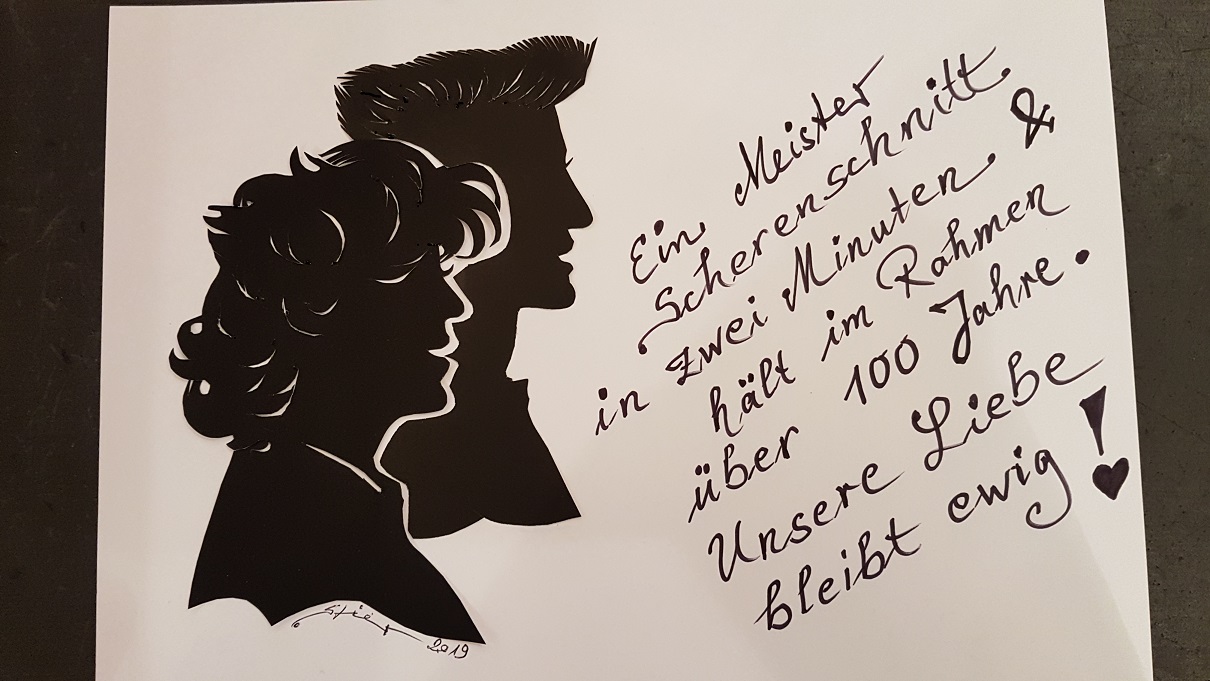 Ein Meister
Scherenschnitt
in zwei Minuten &
hält im Rahmen
über 100 Jahre.
Unsere Liebe
bleibt ewig!
2019